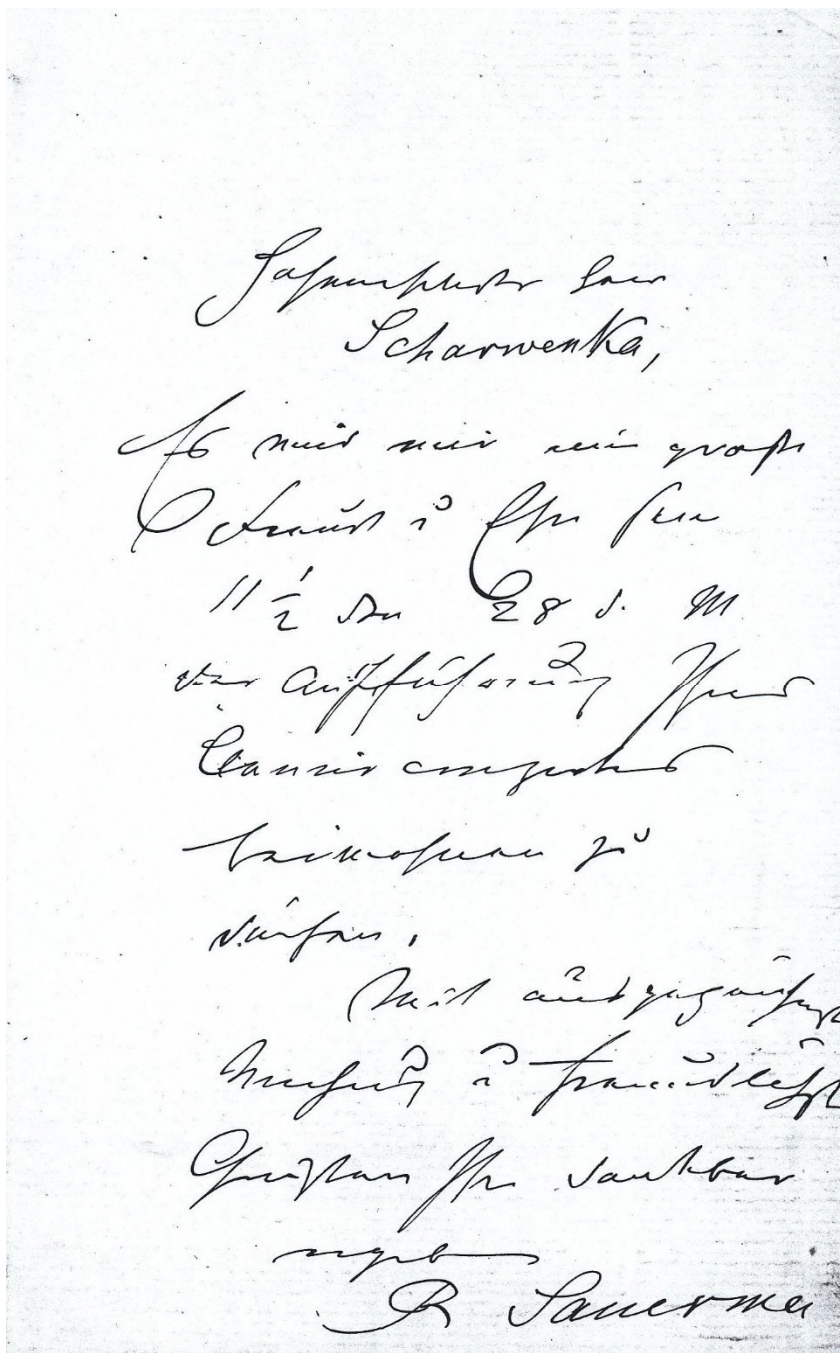 Hochverehrter Herr
Scharwenka,
Es wird mir eine große
Freude u Ehre sein
11 ½ den 28 d. M
der Aufführung Ihres
Clavierconzertes
beiwohnen zu
dürfen.
Mit ausgezeichneter
Verehrung u freundlichst
Grüßen Ihr dankbar
ergeb
R Sauerma